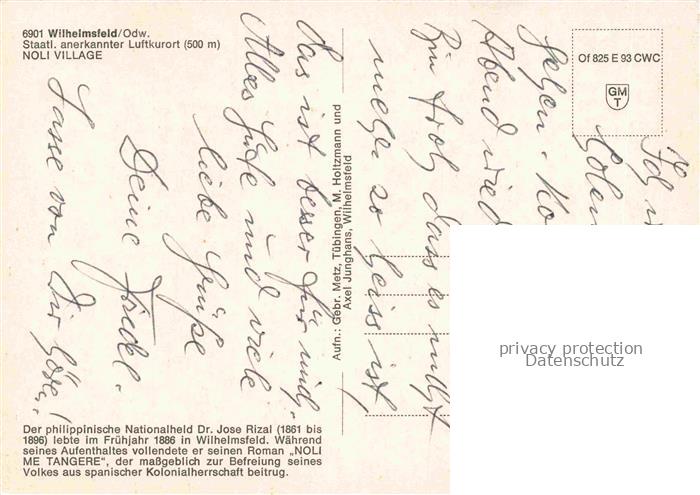 6901 Wilhelmsfeld/Odw.
Staatl. anerkannter Luftkurort (500 m)
NOLI VILLAGE
Of 825 E 93 CWC
GM
T
Aufn.: Gebr. Metz, Tübingen, M. Holtzmann und
Axel Junghans, Wilhelmsfeld
Ich
gehen.
Abend wied
Bin froh dass es nicht
mehr so heiss ist,
das ist besser für mich.
Alles Gute und viele
liebe Grüße
Deine Friedel.
Lasse von Dir hören!
privacy protection
Datenschutz
Der philippinische Nationalheld Dr. Jose Rizal (1861 bis
1896) lebte im Frühjahr 1886 in Wilhelmsfeld. Während
seines Aufenthaltes vollendete er seinen Roman „NOLI
ME TANGERE", der maßgeblich zur Befreiung seines
Volkes aus spanischer Kolonialherrschaft beitrug.